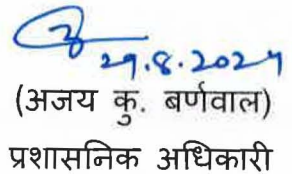 29.8.2024
(अजय कु. बर्णवाल)
प्रशासनिक अधिकारी